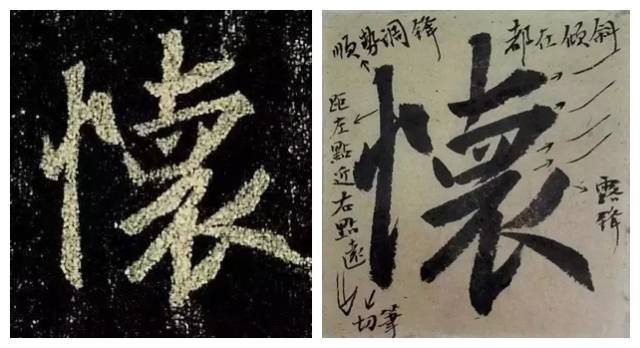 懷
懷
順勢調鋒
都在傾斜
距左點近右點遠
露鋒
切筆